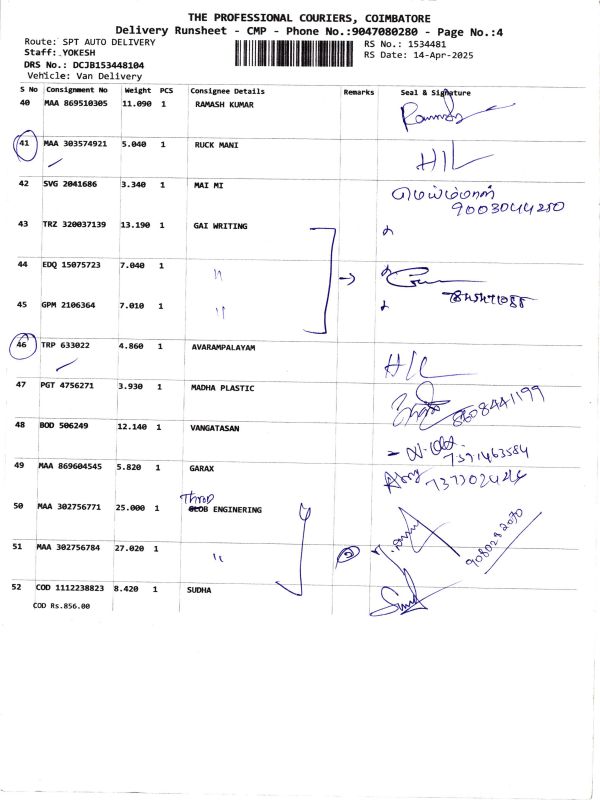 THE PROFESSIONAL COURIERS, COIMBATORE
Delivery Runsheet - CMP - Phone No.:9047080280 - Page No.:4
Route: SPT AUTO DELIVERY
Staff: YOKESH
DRS No.: DCJB153448104
Vehicle: Van Delivery
RS No.: 1534481
RS Date: 14-Apr-2025
S No Consignment No Weight PCS Consignee Details Remarks Seal & Signature
40 MAA 869510305 11.090 1 RAMASH KUMAR
41 MAA 303574921 5.040 1 RUCK MANI H/L
42 SVG 2041686 3.340 1 MAI MI மெய்ம்மாள்
9003044280
43 TRZ 320037139 13.190 1 GAI WRITING
44 EDQ 15075723 7.040 1 "
45 GPM 2106364 7.010 1 "
46 TRP 633022 4.860 1 AVARAMPALAYAM H/L
47 PGT 4756271 3.930 1 MADHA PLASTIC 8608441199
48 BOD 506249 12.140 1 VANGATASAN
49 MAA 869604545 5.820 1 GARAX
50 MAA 302756771 25.000 1 ENGINERING
51 MAA 302756784 27.020 1 " 9080282070
52 COD 1112238823 8.420 1 SUDHA
COD Rs.856.00